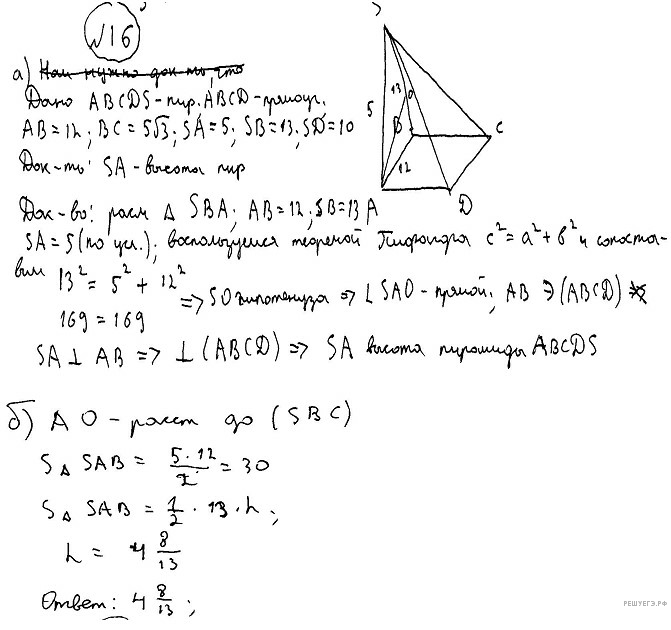 №16
а) Нам нужно док-ть, что
Дано ABCDS - пир. ABCD - прямоуг.
AB = 12; BC = 5√3; SA = 5; SB = 13; SD = 10
Док-ть: SA - высота пир
Док-во: расм Δ SBA; AB = 12; SB = 13
SA = 5 (по усл.); воспользуемся теоремой Пифагора c² = a² + b² и сопоста-
вим
13² = 5² + 12²
169 = 169
=> SO гипотенуза => ∟SAO - прямой; AB ∋ (ABCD)
SA ⊥ AB => ⊥ (ABCD) => SA высота пирамиды ABCDS
5
13
O
B
C
12
A
D
б) AO - расст до (SBC)
S Δ SAB = 5·12/2 = 30
S Δ SAB = 1/2 · 13 · h;
h = 4 8/13
Ответ: 4 8/13;
РЕШУЕГЭ.РФ